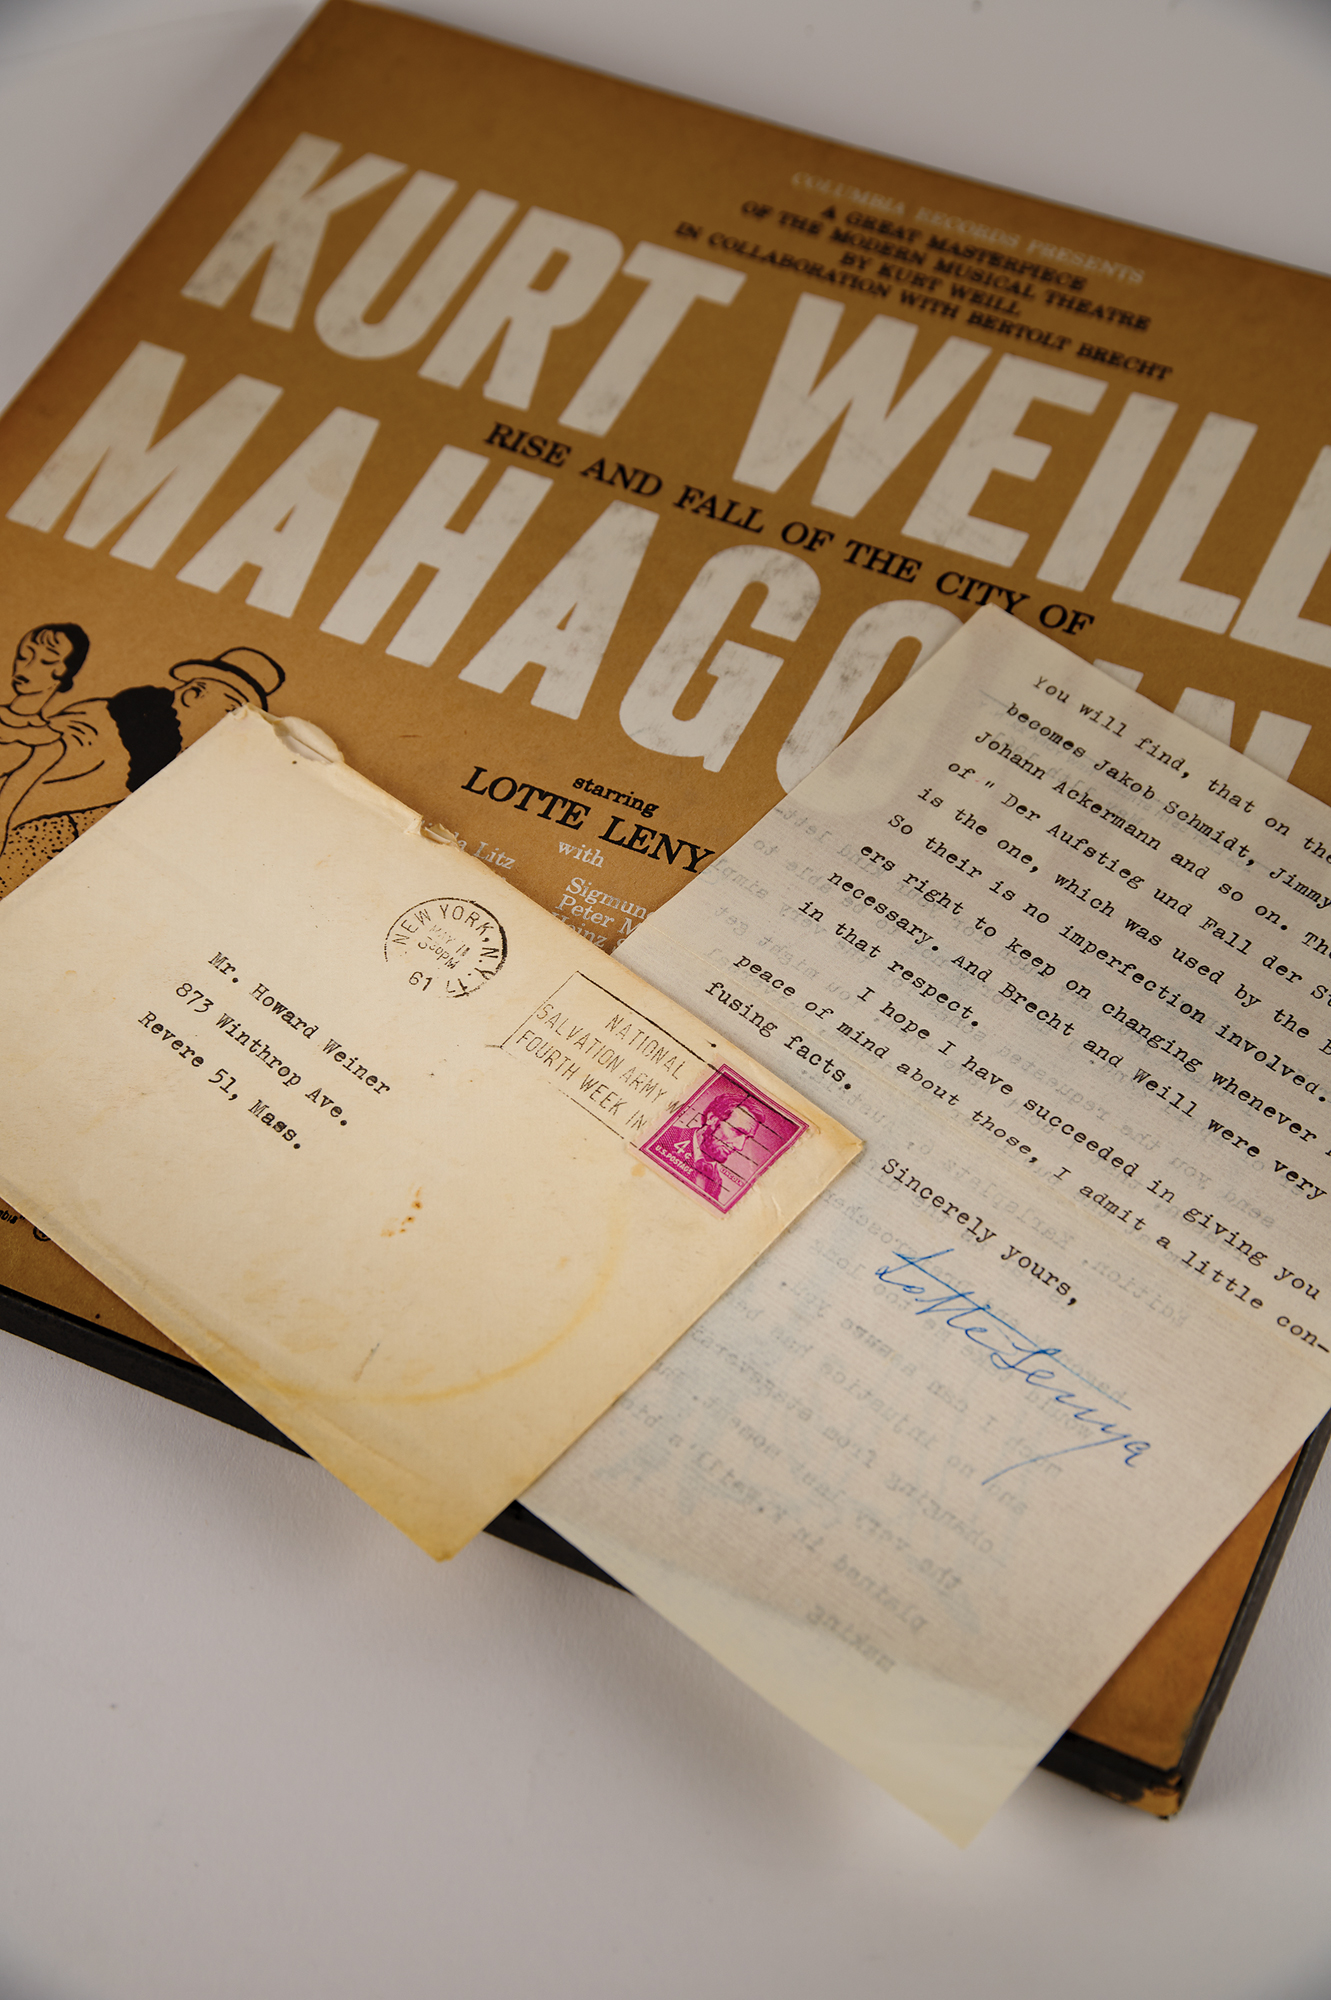 COLUMBIA RECORDS PRESENTS
A GREAT MASTERPIECE
OF THE MODERN MUSICAL THEATRE
BY KURT WEILL
IN COLLABORATION WITH BERTOLT BRECHT
KURT WEILL
RISE AND FALL OF THE CITY OF
MAHAGO
starring
LOTTE LENY
with
Litz
Sigmun
Peter M
Heinz
NEW YORK, N.Y.
MAY 11
530PM
61
NATIONAL
SALVATION ARMY WEE
FOURTH WEEK IN
4¢
U.S. POSTAGE
Mr. Howard Weiner
873 Winthrop Ave.
Revere 51, Mass.
You will find, that on the
becomes Jakob Schmidt, Jimmy
Johann Ackermann and so on. Th
of " Der Aufstieg und Fall der St
is the one, which was used by the B
So their is no imperfection involved.
ers right to keep on changing whenever
necessary. And Brecht and Weill were very
in that respect.
I hope I have succeeded in giving you
peace of mind about those, I admit a little con-
fusing facts.
Sincerely yours,
Lotte Lenya